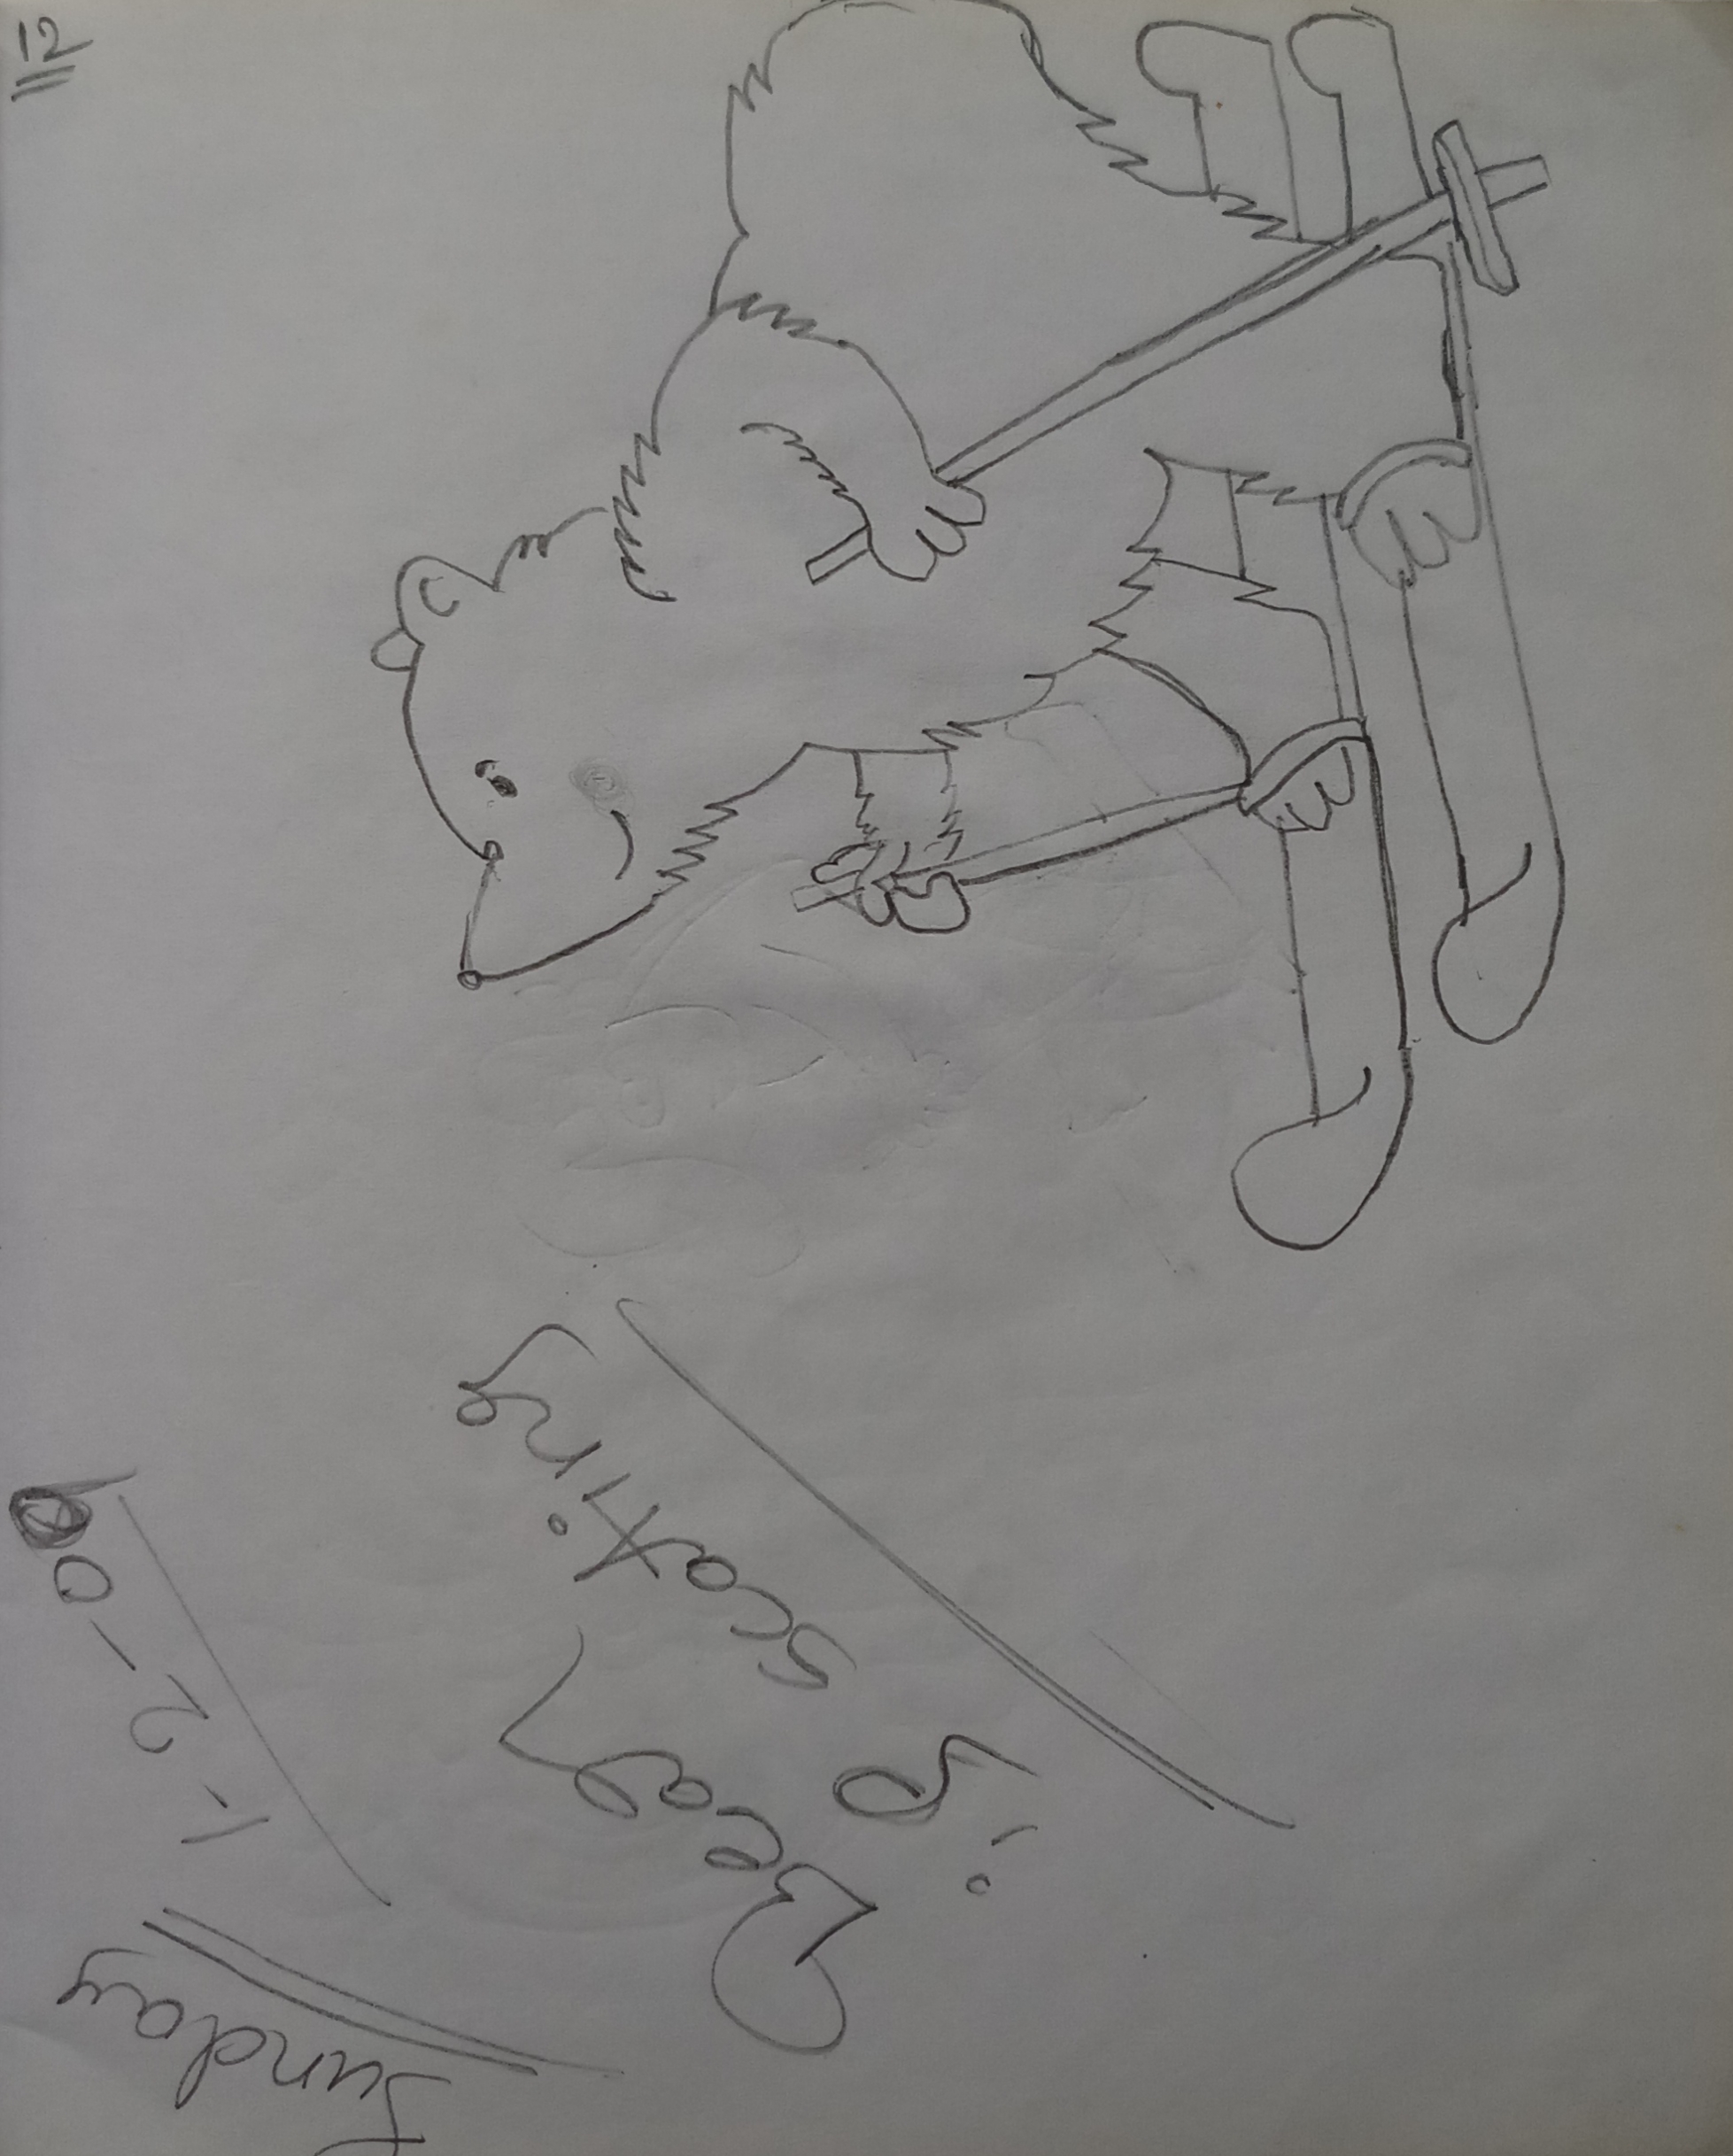 Sunday
1-2-09
Bear
is scating